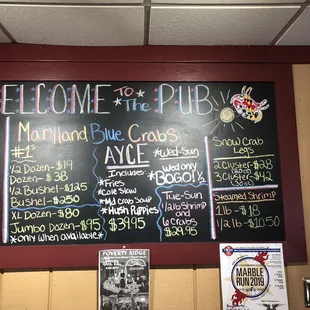 ELCOME TO THE PUB
Maryland Blue Crabs
#1's
1/2 Dozen-$19
Dozen-$38
1/2 Bushel-$125
Bushel-$250
XL Dozen-$80
Jumbo Dozen-$95
*Only when available*
AYCE
*Wed-Sun
Includes
*Fries
*Cole Slaw
*Md Crab Soup
*Hush Puppies
$39.95
*Wed only
BOGO 1/2
Tue-Sun
1/2 lb Shrimp
and
6 Crabs
$29.95
Snow Crab
Legs
2 Cluster-$28
3 Cluster-$42
Steamed Shrimp
1 lb-$18
1/2 lb-$10.50
POVERTY RIDGE
MARBLE
RUN 2019